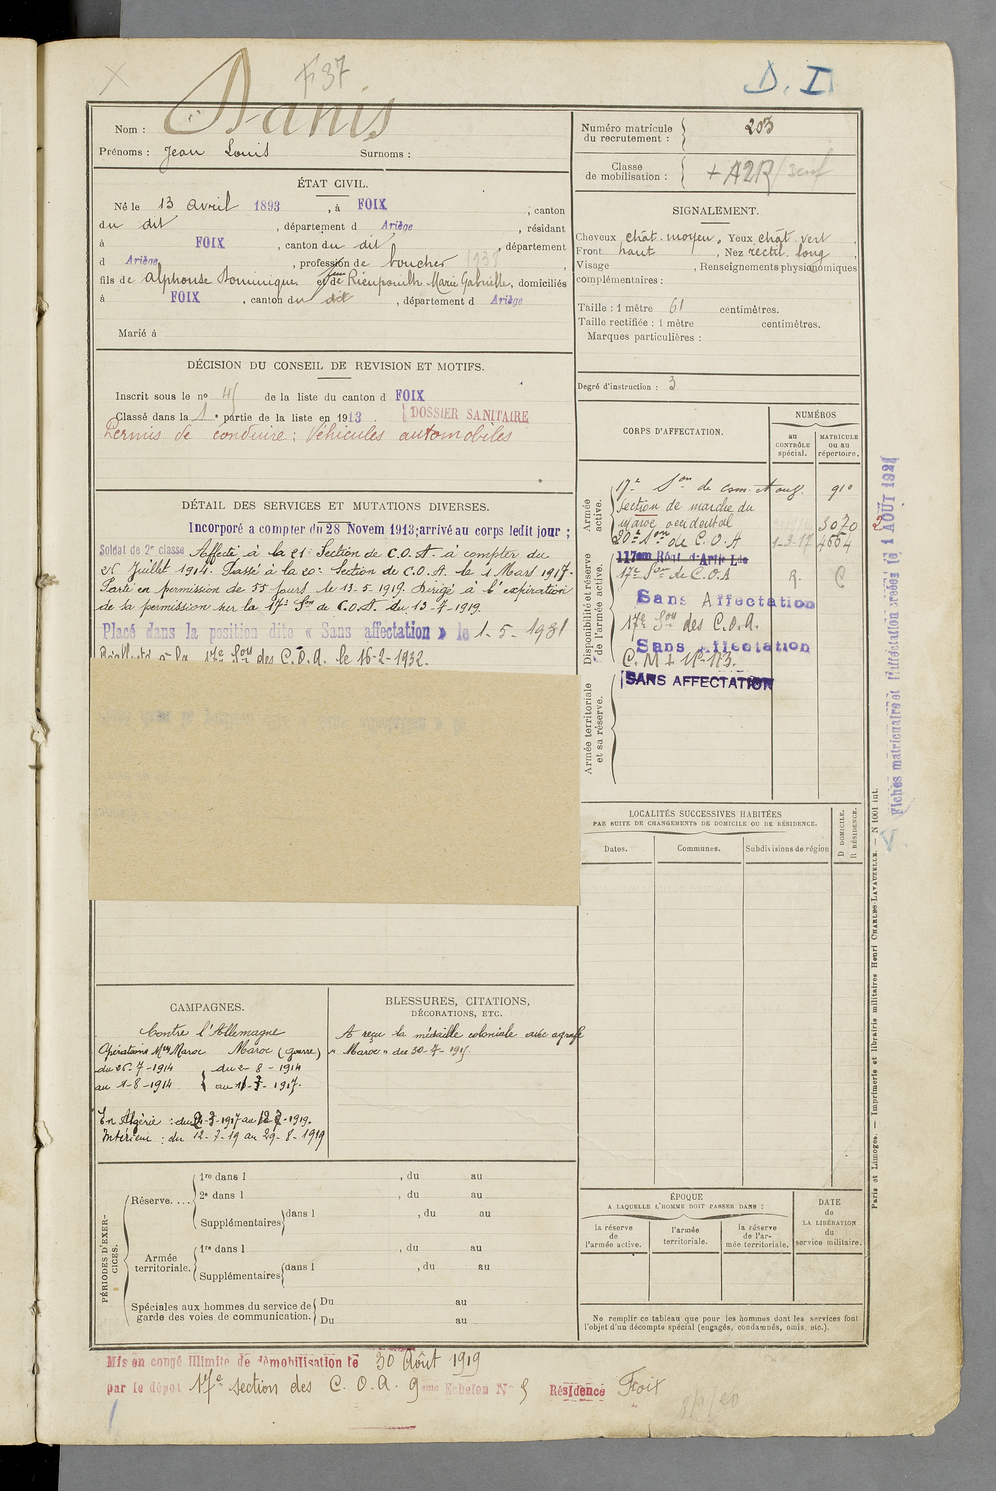 F 37
D. I.
Nom : Danis
Prénoms : Jean Louis Surnoms :
Numéro matricule du recrutement : 203
Classe de mobilisation : + A2R
ÉTAT CIVIL.
Né le 13 avril 1893, à FOIX, canton
du dit, département d Ariège, résidant
à FOIX, canton du dit, département
d Ariège, profession de boucher 1938
fils de Alphonse Dominique et de Marie Gabrielle, domiciliés
à FOIX, canton du dit, département d Ariège
Marié à
SIGNALEMENT.
Cheveux chât. moyen. Yeux chât. vert
Front haut, Nez rectil. long,
Visage , Renseignements physionomiques
complémentaires :
Taille : 1 mètre 61 centimètres.
Taille rectifiée : 1 mètre centimètres.
Marques particulières :
Degré d'instruction : 3
DÉCISION DU CONSEIL DE REVISION ET MOTIFS.
Inscrit sous le no 4 de la liste du canton d FOIX
Classé dans la 1e partie de la liste en 1913 DOSSIER SANITAIRE
Permis de conduire : Véhicules automobiles
DÉTAIL DES SERVICES ET MUTATIONS DIVERSES.
Incorporé a compter du 28 Novem 1913; arrivé au corps ledit jour ;
Soldat de 2e classe Affecté à la 21e Section de C.O.A. à compter du
26 Juillet 1914. Passé à la 20e Section de C.O.A. le 1 Mars 1917.
Parti en permission de 55 jours le 13.5.1919. Dirigé à l'expiration
de sa permission sur la 17e Son de C.O.A. du 13-7-1919.
Placé dans la position dite « Sans affectation » le 1-5-1931
Réaffecté à la 17e Son des C.O.A. le 16-2-1932.
CORPS D'AFFECTATION.
NUMÉROS
au CONTRÔLE spécial.
MATRICULE ou au répertoire.
Armée active.
17e Son de com. et ouv. 910
Section de marche du
Maroc occidental 3070
20e Son de C.O.A 1-3-17 4664
Disponibilité et réserve de l'armée active.
117em Régt d'Artie Lde
17e Son de C.O.A R. C
Sans Affectation
17e Son des C.O.A.
Sans Affectation
Armée territoriale et sa réserve.
SANS AFFECTATION
Fiches matriculaire et d'affectation créées le 1 AOUT 1921
LOCALITÉS SUCCESSIVES HABITÉES
PAR SUITE DE CHANGEMENTS DE DOMICILE OU DE RÉSIDENCE.
Dates. Communes. Subdivisions de région D DOMICILE. R RÉSIDENCE.
CAMPAGNES.
Contre l'Allemagne
Opérations Mres Maroc Maroc (guerre)
du 26-7-1914 du 2-8-1914
au 1-8-1914 au 1-3-1917.
En Algérie : du 2-3-1917 au 12-7-1919.
Intérieur : du 12-7-19 au 29-8-1919
BLESSURES, CITATIONS,
DÉCORATIONS, ETC.
A reçu la médaille coloniale avec agrafe
« Maroc » des 30-7-1915.
PÉRIODES D'EXERCICES.
Réserve....
1re dans l , du au
2e dans l , du au
Supplémentaires dans l , du au
Armée territoriale.
1re dans l , du au
Supplémentaires dans l , du au
Spéciales aux hommes du service de Du au
garde des voies de communication. Du au
ÉPOQUE
A LAQUELLE L'HOMME DOIT PASSER DANS :
la réserve de l'armée active.
l'armée territoriale.
la réserve de l'armée territoriale.
DATE de LA LIBÉRATION du service militaire.
Ne remplir ce tableau que pour les hommes dont les services font
l'objet d'un décompte spécial (engagés, condamnés, omis, etc.).
Paris et Limoges. — Imprimerie et librairie militaires Henri CHARLES-LAVAUZELLE. — N 1001 int.
Mis en congé illimité de démobilisation le 30 Août 1919
par le dépot 17e section des C.O.A. 9eme Echelon No 5 Résidence Foix